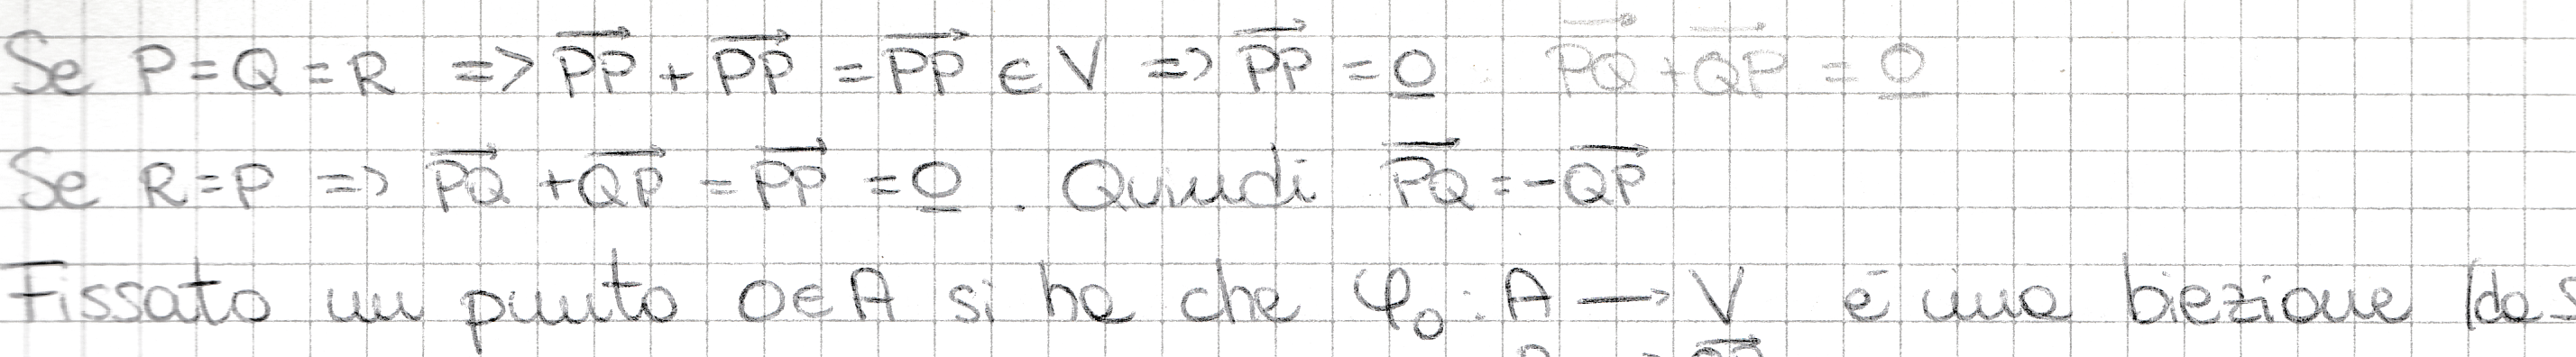 Se P=Q=R => \overrightarrow{PP} + \overrightarrow{PP} = \overrightarrow{PP} ∈ V => \overrightarrow{PP} = \underline{0} \overrightarrow{PQ} + \overrightarrow{QP} = \underline{0}
Se R=P => \overrightarrow{PQ} + \overrightarrow{QP} = \overrightarrow{PP} = \underline{0}. Quindi \overrightarrow{PQ} = -\overrightarrow{QP}
Fissato un punto O∈A si ha che φ_0: A → V è una biezione (da